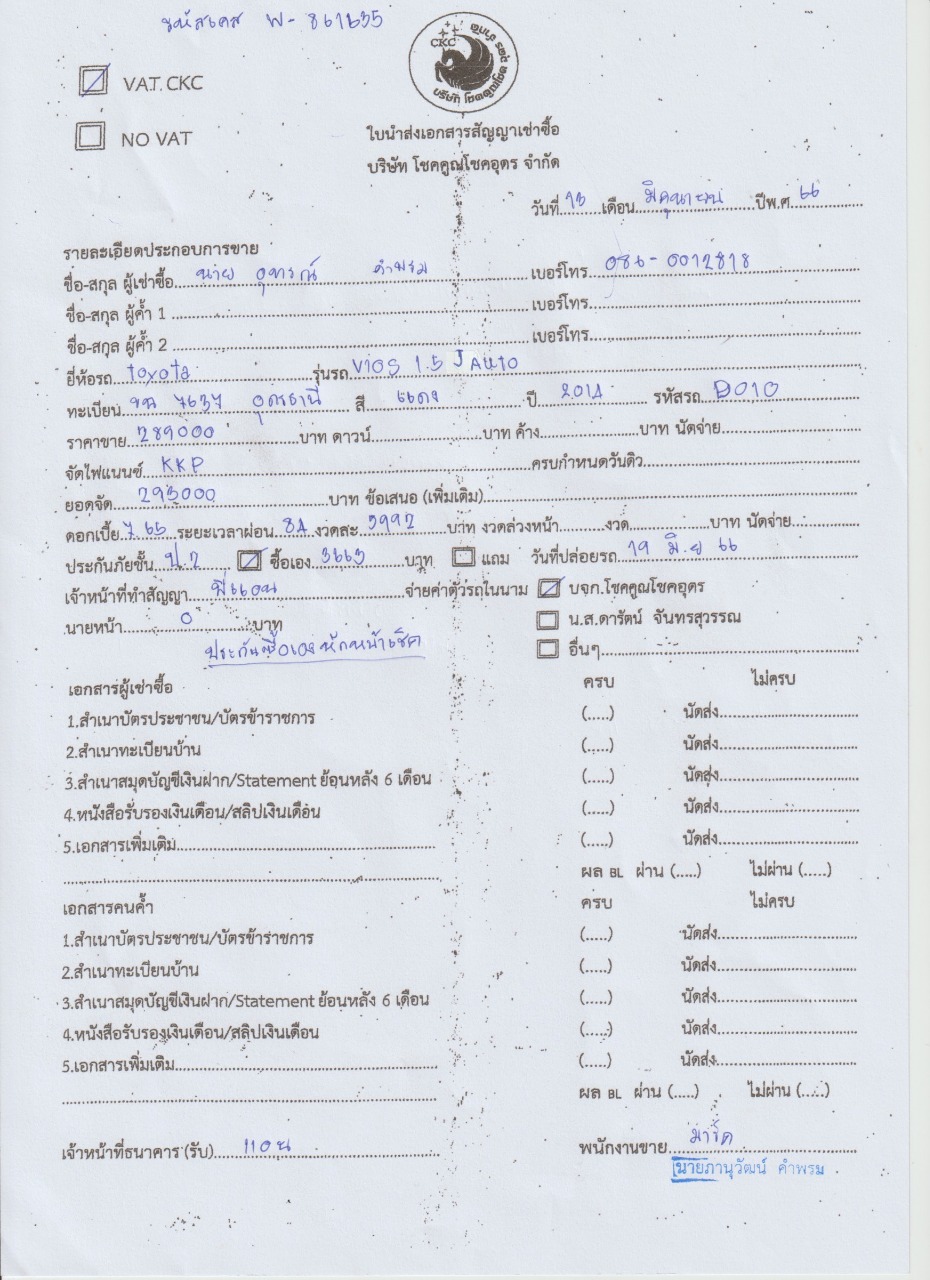 รหัสเคส W- 861635
VAT. CKC
NO VAT
CKC
บริษัท โชคคูณโชค อุดร จำกัด
ใบนำส่งเอกสารสัญญาเช่าซื้อ
บริษัท โชคคูณโชคอุดร จำกัด
วันที่ 13 เดือน มิถุนายน ปีพ.ศ. 66
รายละเอียดประกอบการขาย
ชื่อ-สกุล ผู้เช่าซื้อ นาย อุทรณ์ คำพรม เบอร์โทร 086-0012818
ชื่อ-สกุล ผู้ค้ำ 1 เบอร์โทร
ชื่อ-สกุล ผู้ค้ำ 2 เบอร์โทร
ยี่ห้อรถ toyota รุ่นรถ VIOS 1.5 J AUTO
ทะเบียน ขน 7637 อุดรธานี สี แดง ปี 2014 รหัสรถ D010
ราคาขาย 289000 บาท ดาวน์ บาท ค้าง บาท นัดจ่าย
จัดไฟแนนซ์ KKP ครบกำหนดวันดิว
ยอดจัด 293000 บาท ข้อเสนอ (เพิ่มเติม)
ดอกเบี้ย 7.65 ระยะเวลาผ่อน 84 งวดละ 5992 บาท งวดล่วงหน้า งวด บาท นัดจ่าย
ประกันภัยชั้น ป.2 ซื้อเอง 3663 บาท แถม วันที่ปล่อยรถ 19 มิ.ย 66
เจ้าหน้าที่ทำสัญญา พี่แอน จ่ายค่าตัวรถในนาม บจก.โชคคูณโชคอุดร
นายหน้า 0 บาท น.ส.ดารัตน์ จันทรสุวรรณ
ประกันซื้อเองหักหน้าเช็ค อื่นๆ
เอกสารผู้เช่าซื้อ ครบ ไม่ครบ
1.สำเนาบัตรประชาชน/บัตรข้าราชการ (.....) นัดส่ง
2.สำเนาทะเบียนบ้าน (.....) นัดส่ง
3.สำเนาสมุดบัญชีเงินฝาก/Statement ย้อนหลัง 6 เดือน (.....) นัดส่ง
4.หนังสือรับรองเงินเดือน/สลิปเงินเดือน (.....) นัดส่ง
5.เอกสารเพิ่มเติม (.....) นัดส่ง
ผล BL ผ่าน (.....) ไม่ผ่าน (.....)
เอกสารคนค้ำ ครบ ไม่ครบ
1.สำเนาบัตรประชาชน/บัตรข้าราชการ (.....) นัดส่ง
2.สำเนาทะเบียนบ้าน (.....) นัดส่ง
3.สำเนาสมุดบัญชีเงินฝาก/Statement ย้อนหลัง 6 เดือน (.....) นัดส่ง
4.หนังสือรับรองเงินเดือน/สลิปเงินเดือน (.....) นัดส่ง
5.เอกสารเพิ่มเติม (.....) นัดส่ง
ผล BL ผ่าน (.....) ไม่ผ่าน (.....)
เจ้าหน้าที่ธนาคาร (รับ) แอน พนักงานขาย มาร์ค
นายภานุวัฒน์ คำพรม